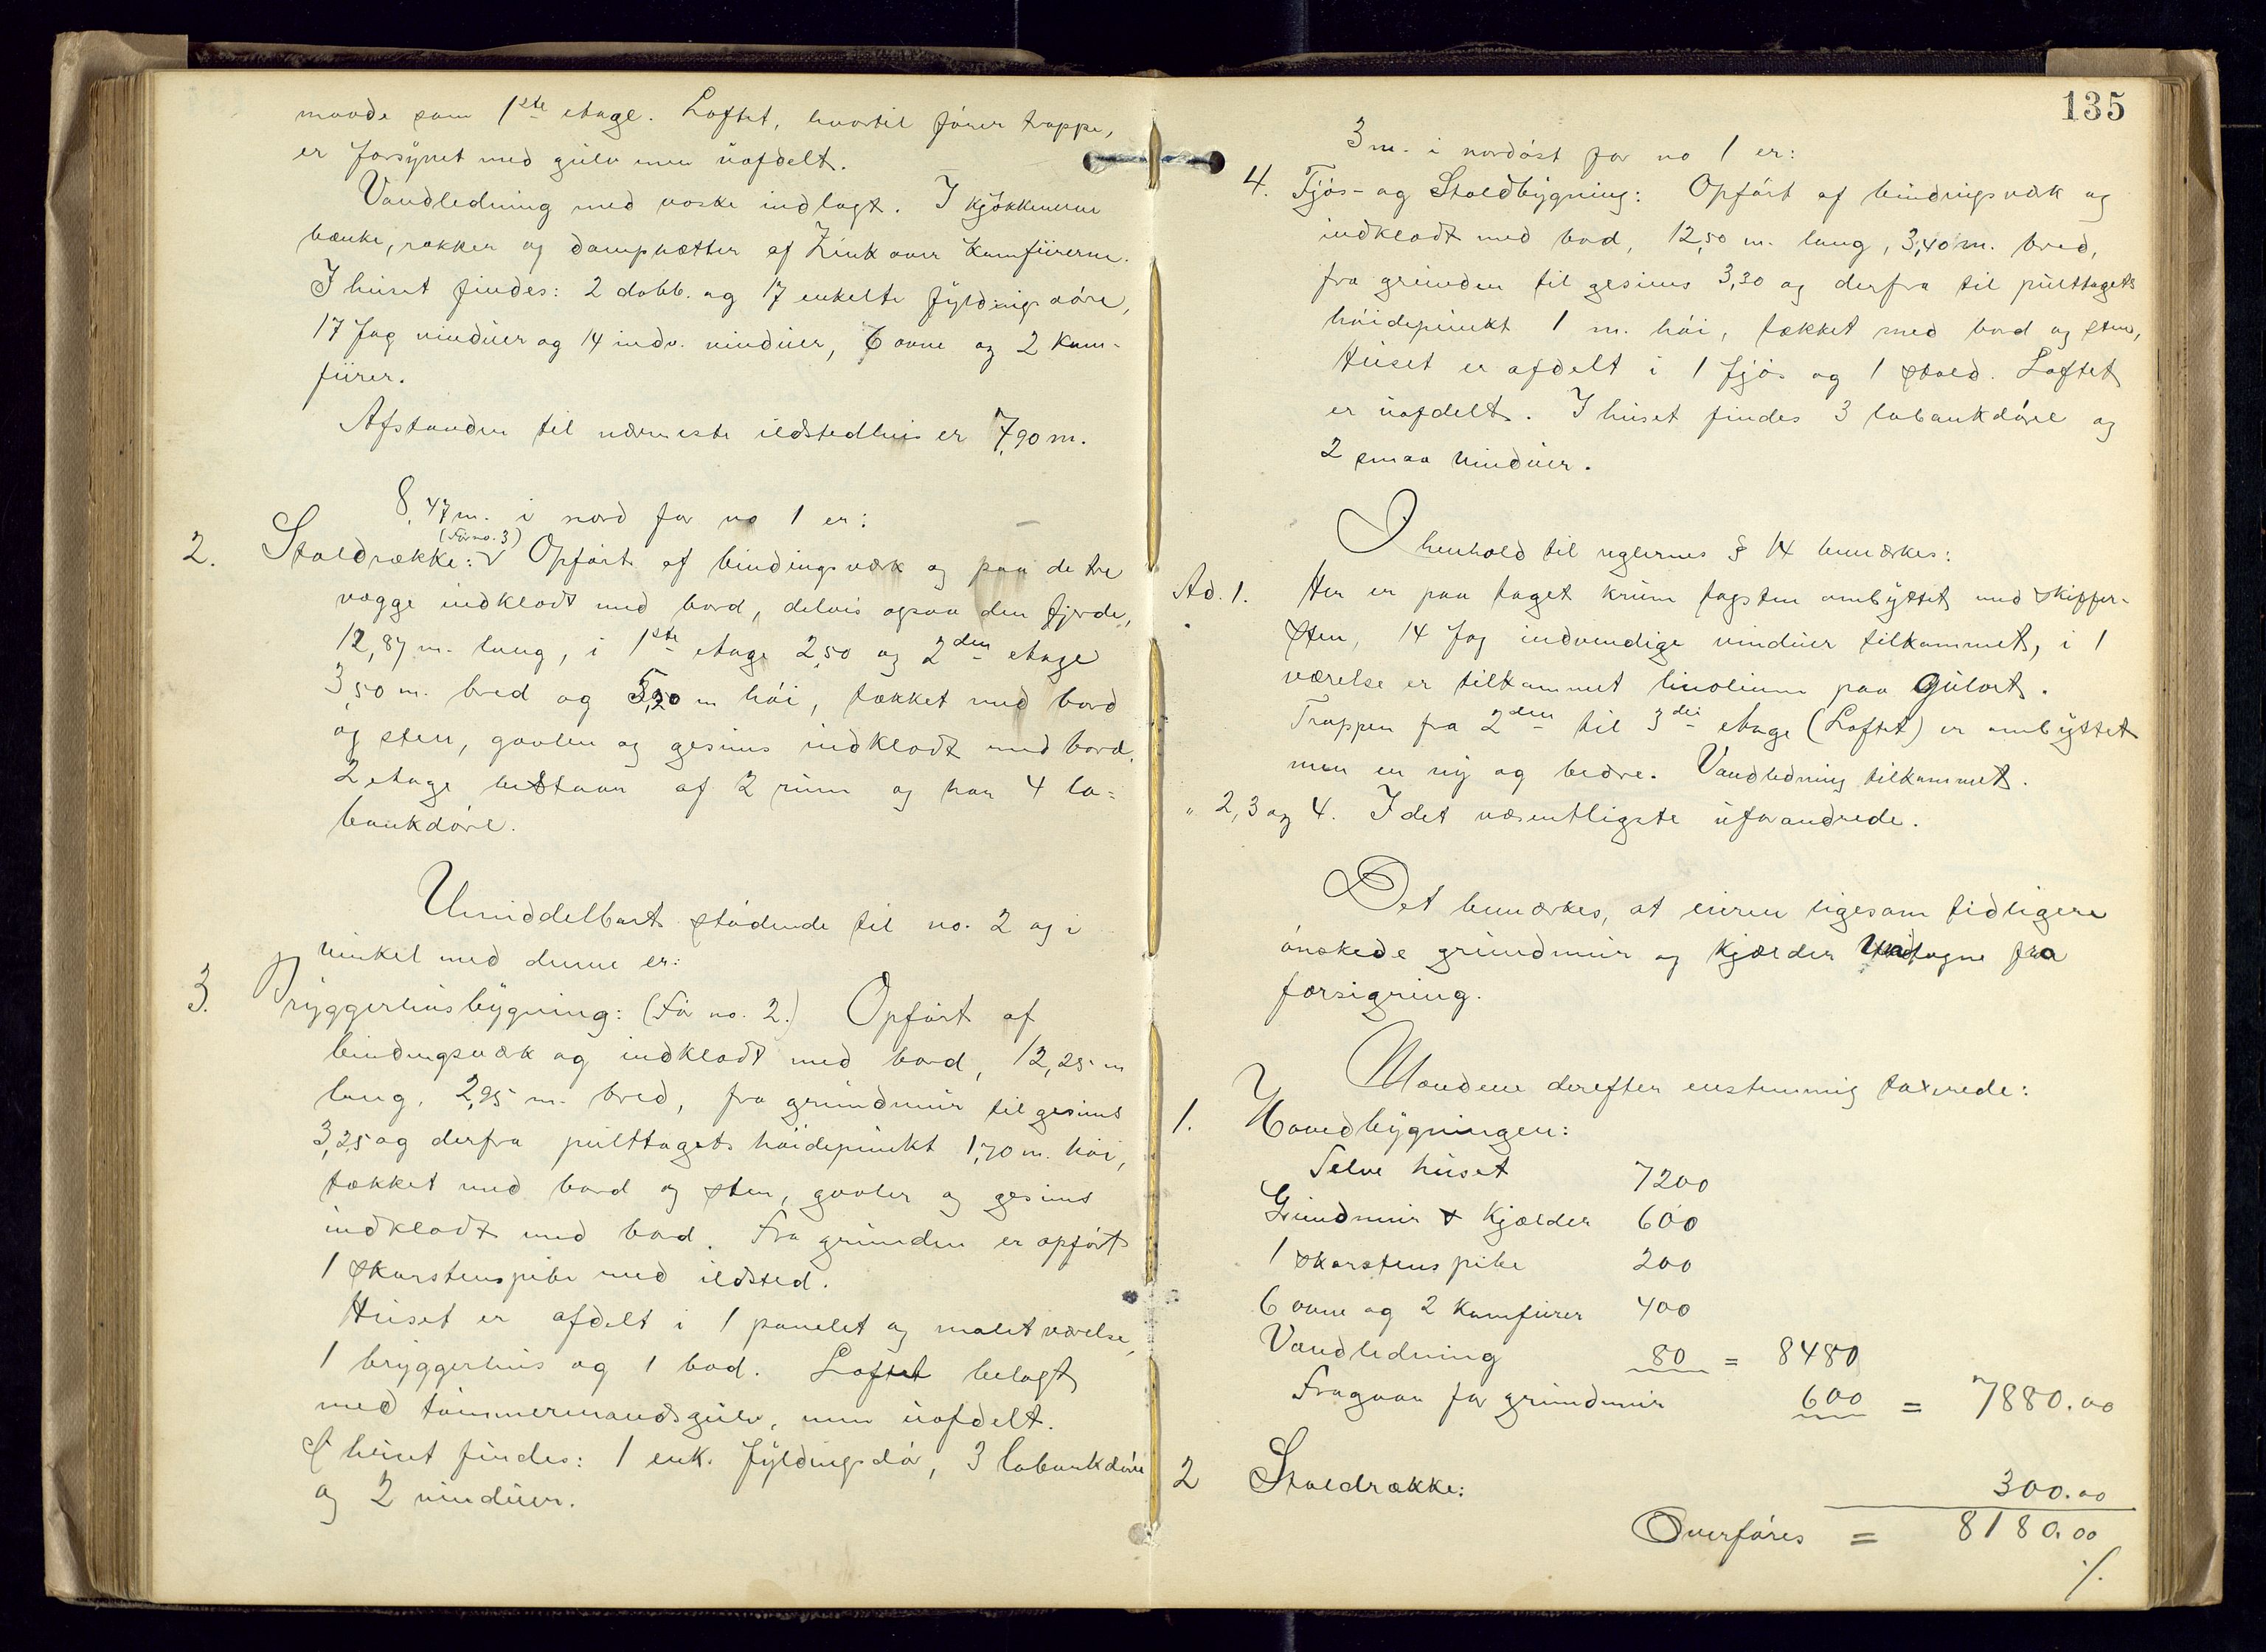 maade som 1ste etage. Loftet, hvortil fører trappe,
er forsynet med gulv men uafdelt.
Vandledning med vaske indlagt. I kjøkkenerne
bænke, rækker og damphætter af Zink over Komfurerne.
I huset findes: 2 dobb. og 17 enkelte fyldingsdøre,
17 fag vinduer og 14 indv. vinduer, 6 ovne og 2 kom-
furer.
Afstanden til nærmeste ildstedhus er 7,90 m.
8,47 m. i nord for no 1 er:
(Før no. 3)
2. Staldrække: Opført af bindingsværk og paa de tre
vægge indklædt med bord, delvis ogsaa den fjerde,
12,87 m. lang, i 1ste etage 2,50 og 2den etage
3,50 m. bred og 5,20 m høi, tækket med bord
og sten, gavlen og gesims indklædt med bord.
2 etage bestaar af 2 rum og har 4 la-
bankdøre.
Umiddelbart stødende til no. 2 og i
vinkel med denne er:
3. Bryggerhusbygning: (Før no. 2.) Opført af
bindingsværk og indklædt med bord, 12,25 m
lang, 2,95 m. bred, fra grundmur til gesims
3,25 og derfra pulttagets høidepunkt 1,70 m. høi,
tækket med bord og sten, gavler og gesims
indklædt med bord. Fra grunden er opført
1 skorstenspibe med ildsted.
Huset er afdelt i 1 panelet og malet værelse,
1 bryggerhus og 1 bod. Loftet belagt
med tømmermandsgulv, men uafdelt.
I huset findes: 1 enk. fyldingsdør, 3 labankdøre
og 2 vinduer.
135
3 m. i nordøst for no 1 er:
4. Fjøs- og Staldbygning: Opført af bindingsværk og
indklædt med bord, 12,50 m. lang, 3,40 m. bred,
fra grunden til gesims 3,30 og derfra til pulttagets
høidepunkt 1 m. høi, tækket med bord og sten,
Huset er afdelt i 1 fjøs og 1 stald. Loftet
er uafdelt. I huset findes 3 labankdøre og
2 smaa vinduer.
I henhold til reglernes § 14 bemærkes:
Ad. 1. Her er paa taget krum tagsten ombyttet med skiffer-
sten, 14 fag indvendige vinduer tilkommet, i 1
værelse er tilkommet linolium paa Gulvet.
Trappen fra 2den til 3die etage (Loftet) er ombyttet
men en ny og bedre. Vandledning tilkommet.
" 2, 3 og 4. I det væsentligste uforandrede.
Det bemærkes, at eieren ligesom tidligere
ønskede grundmur og kjælder undtagne fra
forsigring.
Mændene derefter enstemmig taxerede:
1. Hovedbygningen:
Selve huset 7200
Grundmur & kjælder 600
1 skorstenspibe 200
6 ovne og 2 komfurer 400
Vandledning 80 = 8480
Fragaar for grundmur 600 = 7880.00
2 Staldrække: 300.00
Overføres = 8180.00
./.